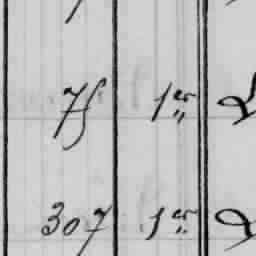 75 1er
307 1er